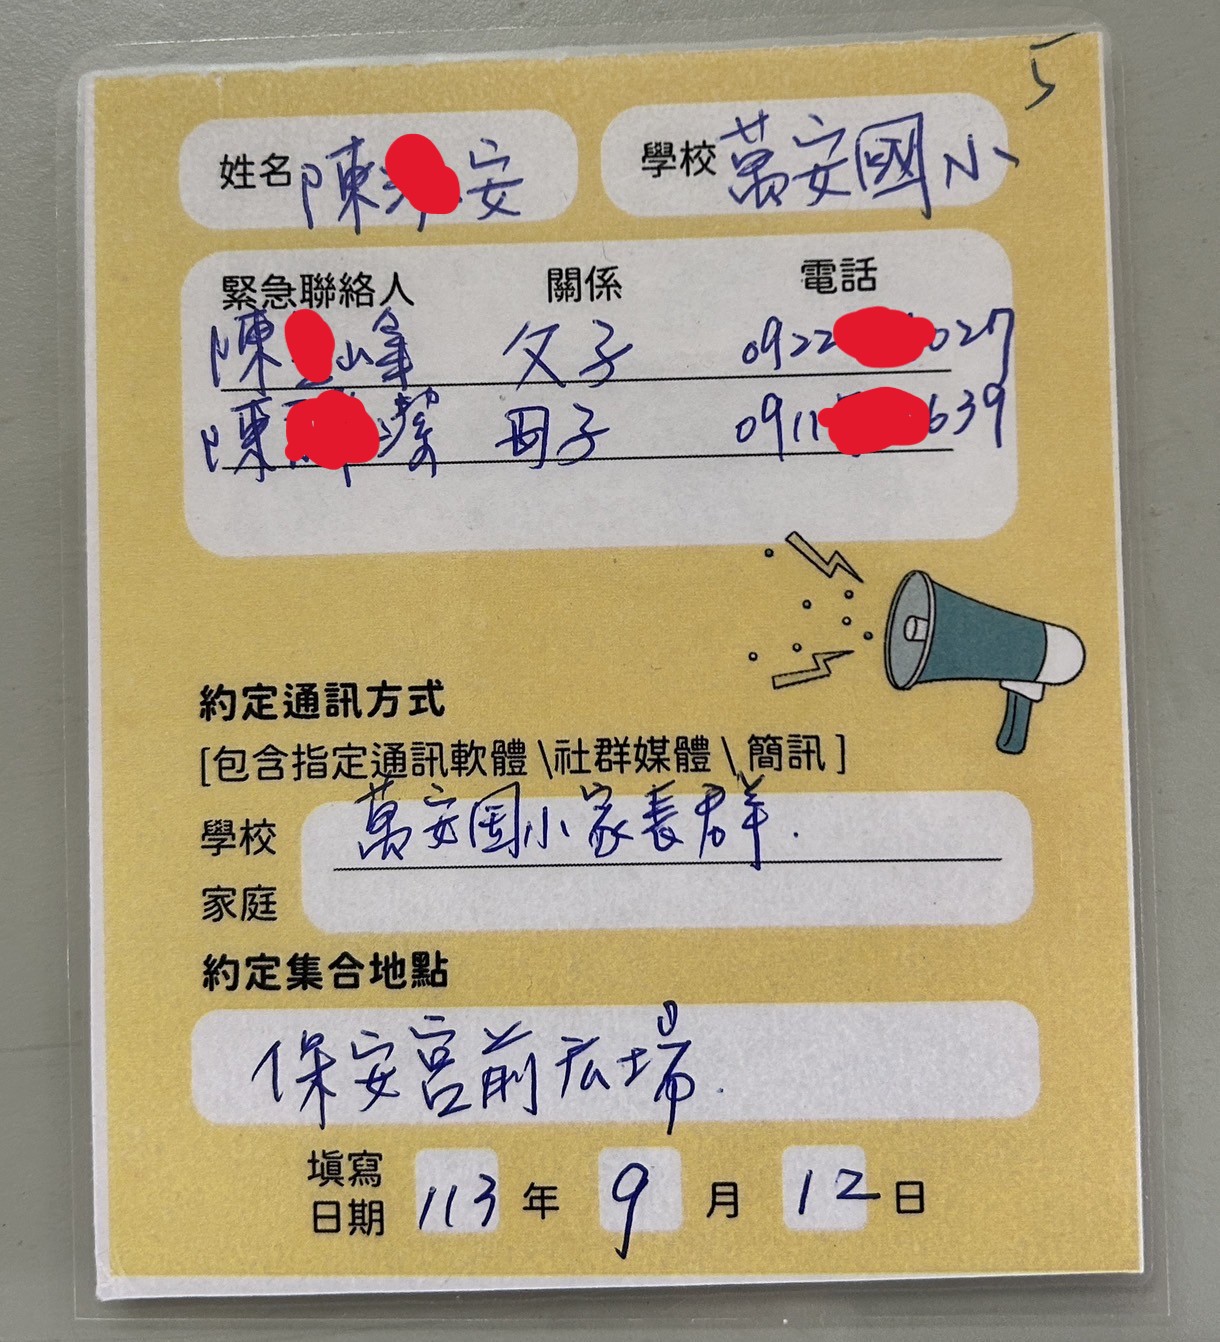 5
姓名 陳 安 學校 萬安國小
緊急聯絡人 關係 電話
陳 峰 父子 0922 027
陳 潔 母子 0911 639
約定通訊方式
[包含指定通訊軟體 \社群媒體 \ 簡訊 ]
學校 萬安国小家長群.
家庭
約定集合地點
保安宮前広場.
填寫
日期 113 年 9 月 12 日